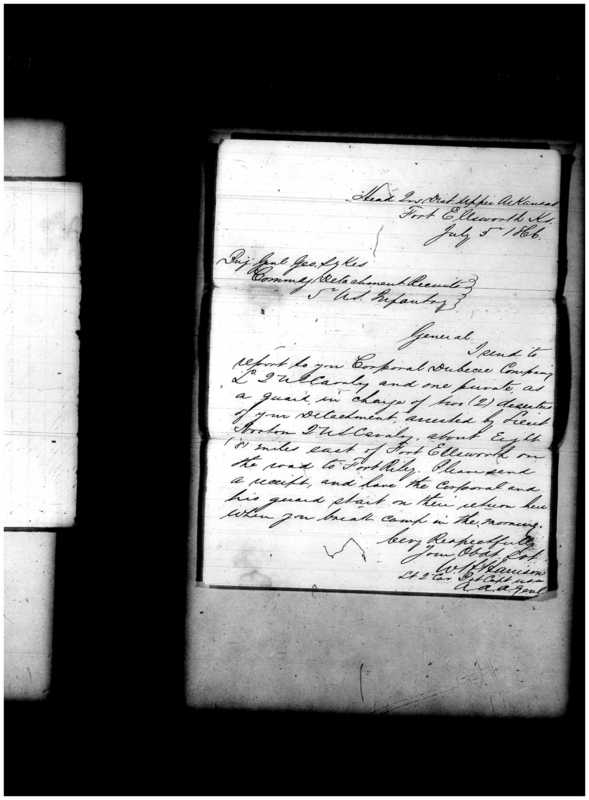 Head Qrs Dist. Upper Arkansas
Fort Ellsworth Ks.
July 5" 1866.
Brig Genl Geo. Sykes
Commdg Detachment Recruits
5" U.S. Infantry
General
I send to
report to you Corporal Company
L 2 US Cavalry and one private, as
a guard in charge of two (2) deserters
of your Detachment, arrested by Lieut
Norton 2 US Cavalry, about Eight
(8) miles east of Fort Ellsworth on
the road to Fort Riley. Please send
a receipt, and have the Corporal and
his guard start on their return here
when you break camp in the morning.
Very Respectfully
Your Obdt Svt
W. H. Harrison
Lt 2 Cav Bvt Capt USA
A.A.A. Genl